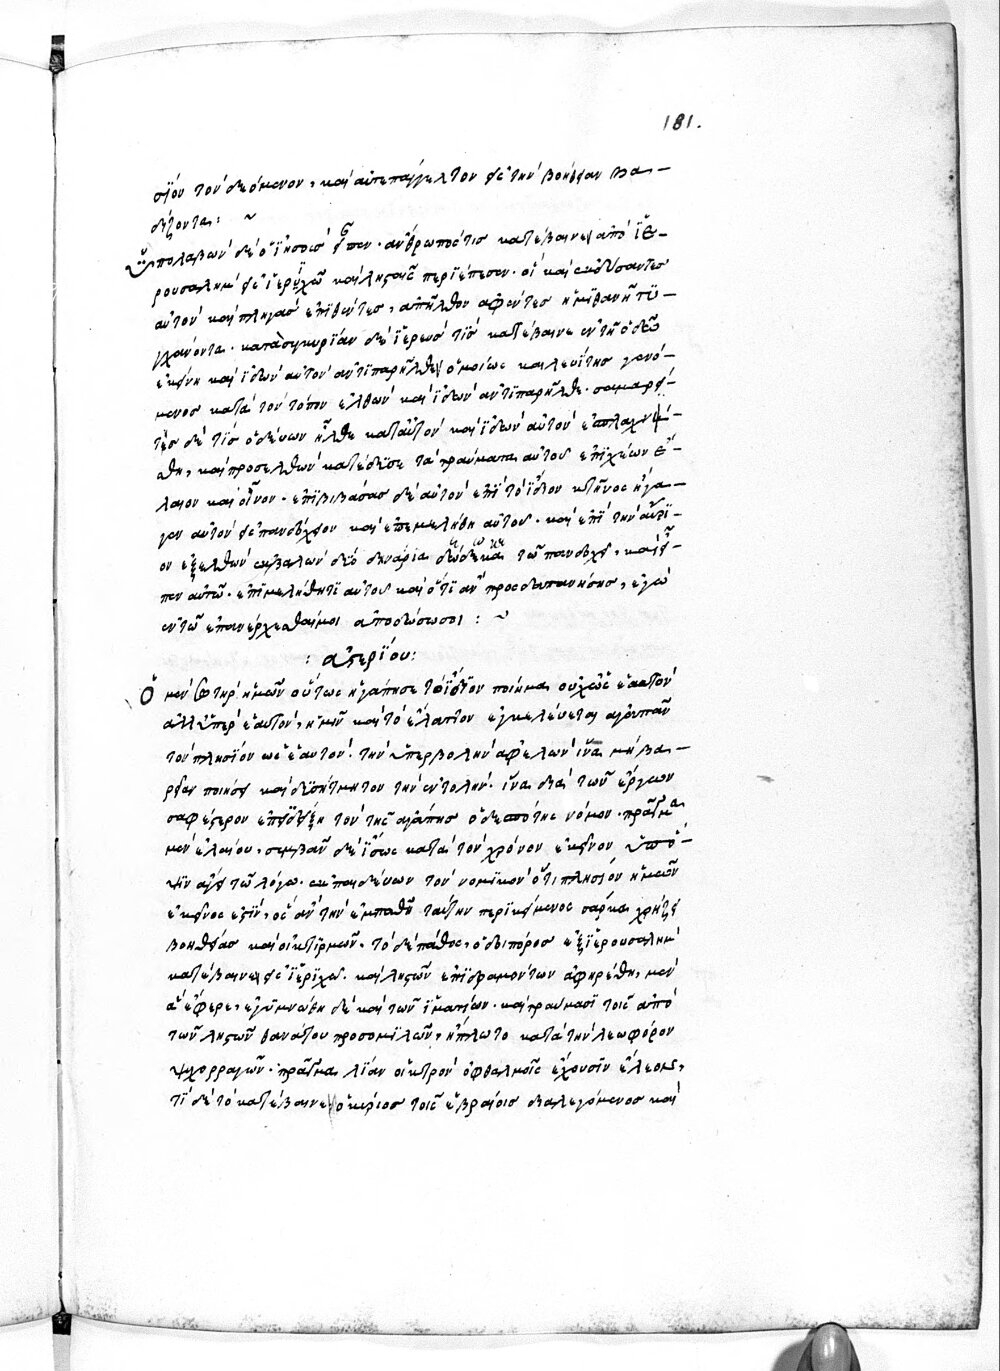 181.
σϊόν τὸν δεόμενον, καὶ αὐτεπάγγελτον εἰς τὴν βοήθειαν βα-
δίζοντα: ~
Ὑπολαβὼν δὲ ὁ ἰησοῦς εἶπεν· ἄνθρωπός τις κατέβαινεν ἀπὸ ἱε-
ρουσαλὴμ εἰς ἱερϊχὼ καὶ λῃσταῖς περιέπεσεν· οἳ καὶ ἐκδύσαντες
αὐτὸν καὶ πληγὰς ἐπιθέντες, ἀπῆλθον ἀφέντες ἡμιθανῆ τυ-
γχάνοντα· κατὰ συγκυρίαν δὲ ἱερεύς τις κατέβαινε ἐν τῇ ὁδῷ
ἐκείνῃ καὶ ἰδὼν αὐτὸν ἀντιπαρῆλθεν ὁμοίως καὶ λευΐτης γενό-
μενος κατὰ τὸν τόπον ἐλθὼν καὶ ἰδὼν ἀντιπαρῆλθε· σαμαρεί-
της δέ τις ὁδεύων ἦλθε κατ' αὐτὸν καὶ ἰδὼν αὐτὸν ἐσπλαγχνί-
σθη, καὶ προσελθὼν κατέδησε τὰ τραύματα αὐτοῦ ἐπιχέων ἔ-
λαιον καὶ οἶνον· ἐπιβιβάσας δὲ αὐτὸν ἐπὶ τὸ ἴδιον κτῆνος ἤγα-
γεν αὐτὸν εἰς πανδοχεῖον καὶ ἐπεμελήθη αὐτοῦ· καὶ ἐπὶ τὴν αὔρϊ-
ον ἐξελθὼν ἐκβαλὼν δύο δηνάρια δέδωκε τῷ πανδοχεῖ, καὶ εἶ-
πεν αὐτῷ· ἐπιμελήθητι αὐτοῦ καὶ ὅτι ἂν προσδαπανήσῃς, ἐγὼ
ἐν τῷ ἐπανέρχεσθαί μοι ἀποδώσω σοι: ~
: ἀστερίου:
Ὁ μὲν σωτὴρ ἡμῶν οὕτως ἠγάπησε τὸ ἴδιον ποίημα οὐχ ὡς ἑαυτὸν
ἀλλ' ὑπὲρ ἑαυτὸν, ἡμῖν κατὰ τὸ ἔλαττον ἐγκελεύεται ἀγαπᾶν
τὸν πλησίον ὡς ἑαυτόν· τὴν ὑπερβολὴν ἀφελὼν ἵνα μὴ βα-
ρεῖαν ποιήσῃ καὶ δυσήνυτον τὴν ἐντολήν· ἵνα διὰ τῶν ἔργων
σαφέστερον ἐπιδείξῃ τὸν τῆς ἀγάπης ὁ δεσπότης νόμον· πρᾶγμα
μὲν ἐλαίου, συμβὰν δὲ ἴσως κατὰ τὸν χρόνον ἐκεῖνον ὑπό-
ψιν ἄγει τῷ λόγῳ· ἐκπαιδεύων τὸν νομικὸν ὅτι πλησίον ἡμῶν
ἐκεῖνος ἐστὶν, ὃς ἂν τὴν ἐμπαθῆ ταύτην περικείμενος σάρκα χρῄζει
βοηθείας καὶ οἰκτιρμῶν· τὸ δὲ πάθος, ὁδοιπόρος ἐξ ἱερουσαλὴμ
κατέβαινεν εἰς ἱεριχώ· καὶ λῃστῶν ἐπιδραμόντων ἀφῃρέθη, μὲν
ἃ ἔφερε, ἐγυμνώθη δὲ καὶ τῶν ἱματίων· καὶ τραύμασι τοῖς ἀπὸ
τῶν λῃστῶν θανάτου προσομιλῶν, ἥπλωτο κατὰ τὴν λεωφόρον
ψυχορραγῶν· πρᾶγμα λίαν οἰκτρὸν ὀφθαλμοῖς ἔχουσιν ἔλεος,
τί δὲ τὸ κατέβαινεν ὁ κύριος τοῖς ἑβραίοις διαλεγόμενος καὶ